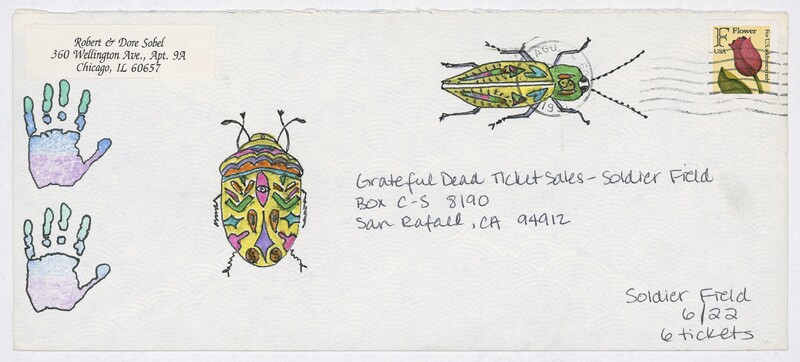 Robert & Dore Sobel
360 Wellington Ave., Apt. 9A
Chicago, IL 60657
F Flower
USA
For U.S. addresses only
AGO, IL
19
Grateful Dead Ticket Sales - Soldier Field
Box C-S 8190
San Rafael, CA 94912
Soldier Field
6/22
6 tickets